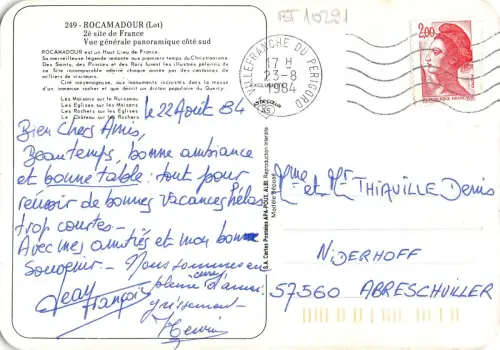 BT 10291
249 - ROCAMADOUR (Lot)
2è site de France
Vue générale panoramique côté sud
ROCAMADOUR est un Haut Lieu de France
Sa merveilleuse légende remonte aux premiers temps du Christianisme
Des Saints, des Princes et des Rois furent les illustres pèlerins de
ce Site incomparable admiré chaque année par des centaines de
milliers de visiteurs.
Cité moyenageuse, aux monuments insérés dans la masse
d'un immense rocher et que décrit un dicton populaire du Quercy.
Les Maisons sur le Ruisseau
Les Eglises sur les Maisons
Les Rochers sur les Eglises
Le Château sur les Rochers
le 22 Août 84
Bien Chers Amis,
Beau temps, bonne ambiance
et bonne table : tout pour
revenir de bonnes vacances hélas
trop courtes -
Avec mes amitiés et mon bon
souvenir - Nous sommes en
pleine d'amai
grissement -
Jean
François
VILLEFRANCHE DU PERIGORD
17 H
23-8
1984
2,00
REPUBLIQUE FRANÇAISE
S.A. Cartes Postales APA-POUX, ALBI. Reproduction interdite
Modèle Déposé
Mme et Mr THIAVILLE Denis
NIDERHOFF
57560 ABRESCHVILLER